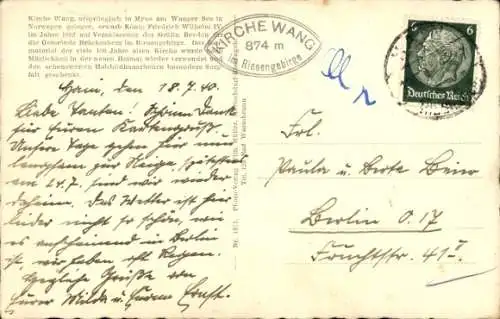 Kirche Wang, ursprünglich in Myus am Wanger See in
Norwegen gelegen, erwarb König Friedrich Wilhelm IV.
im Jahre 1842 auf Veranlassung der Gräfin Reden für
die Gemeinde Brückenberg im Riesengebirge. Das
material der viele 100 Jahre alten Kirche wurde
Möglichkeit in der neuen Heimat wieder verwendet und
den schonenswerten Holzbildhauerarbeiten besondere Sorg-
falt geschenkt.
KIRCHE WANG
874 m
i. Riesengebirge
6 6
Deutsches Reich
Hain, den 18.7.40.
Liebe Tanten! Schönen Dank
für Euren Kartengruß.
Unsere Tage gehen hier nun
langsam zur Neige, spätestens
am 24.7. sind wir wieder
daheim. Das Wetter ist hier
leider nicht so schön, wie
es anscheinend in Berlin
ist, wir haben oft Regen.
Herzliche Grüße von
Eurer Milda u. Eurem Ernst.
Frl.
Paula u. Berta Beier
Berlin O.17
Fruchtstr. 41 II